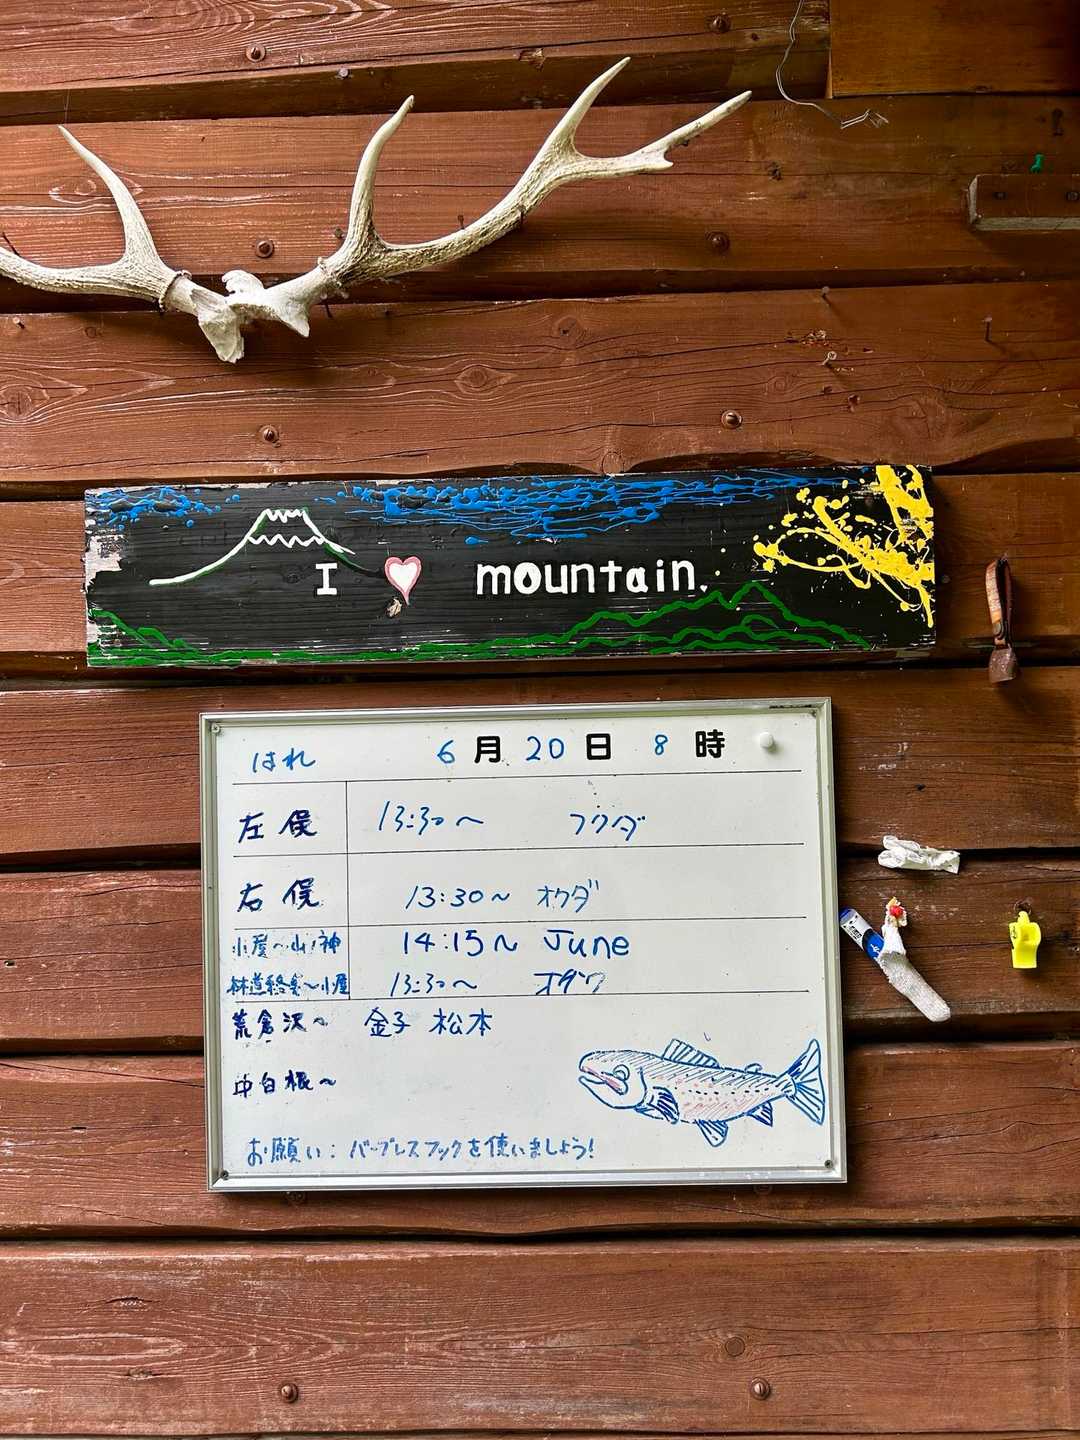 I ♥ mountain.
はれ 6月20日 8時
左俣 13:30〜 フクダ
右俣 13:30〜 オクダ
小屋〜山ノ神 14:15〜 June
林道終点〜小屋 13:30〜 オダワ
荒倉沢〜 金子 松本
中白根〜
お願い:バーブレスフックを使いましょう!